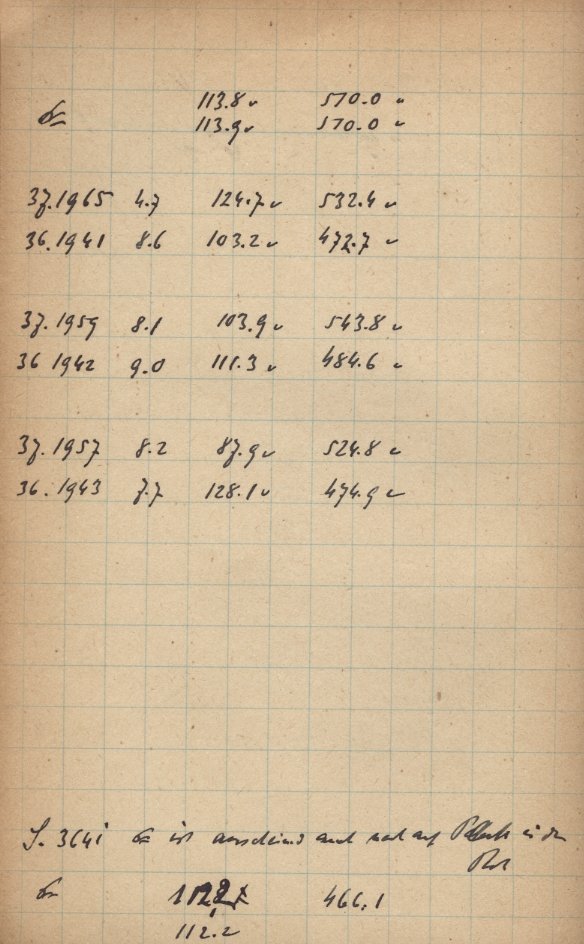 113.8 570.0
113.9 570.0
37.1965 4.7 124.7 532.4
36.1941 8.6 103.2 472.7
37.1959 8.1 103.9 543.8
36 1942 9.0 111.3 484.6
37.1957 8.2 87.9 524.8
36.1943 7.7 128.1 474.9
S. 364i ist auf in
466.1
112.2